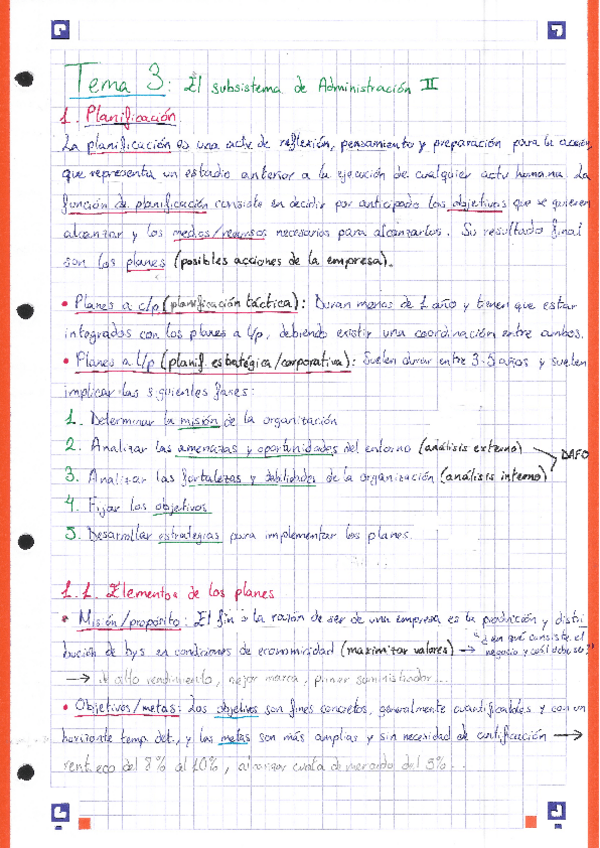 Tema 3: El subsistema de Administración II
1. Planificación
La planificación es una actv de reflexión, pensamiento y preparación para la acción,
que representa un estadio anterior a la ejecución de cualquier actv humana. La
función de planificación consiste en decidir por anticipado los objetivos que se quieren
alcanzar y los medios/recursos necesarios para alcanzarlos. Su resultado final
son los planes (posibles acciones de la empresa).
• Planes a c/p (planificación táctica): Duran menos de 1 año y tienen que estar
integrados con los planes a l/p, debiendo existir una coordinación entre ambos.
• Planes a l/p (planif. estratégica/corporativa): Suelen durar entre 3-5 años y suelen
implicar las siguientes fases:
1. Determinar la misión de la organización
2. Analizar las amenazas y oportunidades del entorno (análisis externo)
DAFO
3. Analizar las fortalezas y debilidades de la organización (análisis interno)
4. Fijar los objetivos
5. Desarrollar estrategias para implementar los planes.
1.1. Elementos de los planes
• Misión/propósito: El fin o la razón de ser de una empresa es la producción y distri
bución de bys en condiciones de economicidad (maximizar valores) → "¿en qué consiste el
negocio y cuál debe ser?"
→ de alto rendimiento, mejor marca, primer suministrador...
• Objetivos/metas: Los objetivos son fines concretos, generalmente cuantificables y con un
horizonte temp. det., y las metas son más amplias y sin necesidad de cuantificación →
rent. eco del 8% al 10%, alcanzar cuota de mercado del 5%...